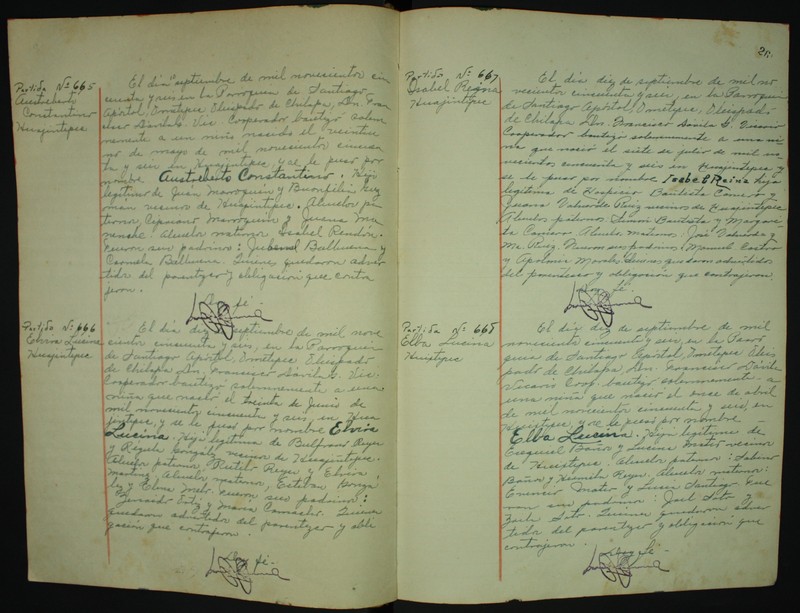 Partida Nº 665
Austicberto
Constantino
Huajintepec
El dia septiembre de mil novecientos cin
cuenta y seis en la Parroquia de Santiago
Apóstol, Ometepec Obispado de Chilapa, Dn. Fran
cisco Dávila S. Vic Cooperador bautizó solem
nemente a un niño nacido el veintiu
no de mayo de mil novecientos cincuen
ta y seis en Huajintepec, y se le puso por
nombre Austicberto Constantino. Hijo
legítimo de Juan Marroquin y
vecinos de Huajintepec. Abuelos pa
ternos Marroquin y Juana
abuela materna Isabel Rendón.
Fueron sus padrinos: Juvenal y
Carmela Quienes quedaron adver
tidos del parentezco y obligación que contra
jeron.
Doy fé.
Partida Nº 666
Elvira Lucina
Huajintepec
El dia diez septiembre de mil nove
cientos cincuenta y seis, en la Parroquia
de Santiago Apóstol, Ometepec Obispado
de Chilapa Dn. Francisco Dávila S. Vic.
Cooperador bautizó solemnemente a una
niña que nació el treinta de Junio de
mil novecientos cincuenta y seis, en Hua
jintepec, y se le puso por nombre Elvira
Lucina. Hija legítima de Reyes
y Regula González vecinos de Huajintepec.
Abuelos paternos, Reyes y Elvira
Martínez, Abuelos maternos, Esteban Gonzá
lez y Elena Fueron sus padrinos:
y Maria Quienes
quedaron advertidos del parentezco y obli
gación que contrajeron.
Doy fé.
Partida Nº 667
Isabel Reina
Huajintepec
El dia diez de septiembre de mil no
vecientos cincuenta y seis, en la Parroquia
de Santiago Apóstol, Ometepec, Obispado
de Chilapa Dn. Francisco Dávila S. Vicario
Cooperador bautizó solemnemente a una ni
ña que nació el siete de julio de mil no
vecientos cincuenta y seis en Huajintepec y
se le puso por nombre Isabel Reina hija
legítima de Hospicio Bautista Camero y
Ruiz vecinos de Huajintepec
Abuelos paternos Simón Bautista y Margari
ta Camero Abuelos maternos: José y
Ma. Ruiz. Fueron sus padrinos, Manuel Castro
y Apolonia Morales quienes quedaron advertidos
del parentesco y obligación que contrajeron.
Doy fé.
Partida Nº 668
Elba Lucina
Huistepec
El dia diez de septiembre de mil
novecientos cincuenta y seis, en la Parro
quia de Santiago Apóstol, Ometepec Obis
pado de Chilapa Dn. Francisco Dávila
Vicario Coop. bautizó solemnemente a
una niña que nació el once de abril
de mil novecientos cincuenta y seis, en
Huistepec, y se le puso por nombre
Elba Lucina. Hija legítima de
Ezequiel Baños y Lucina vecinos
de Huistepec. Abuelos paternos: Sabino
Baños y Reyes, Abuelos maternos:
y Lucia Santiago Fue
ron sus padrinos: Joel y
Quienes quedaron adver
tidos del parentezco y obligación que
contrajeron.
Doy fé.